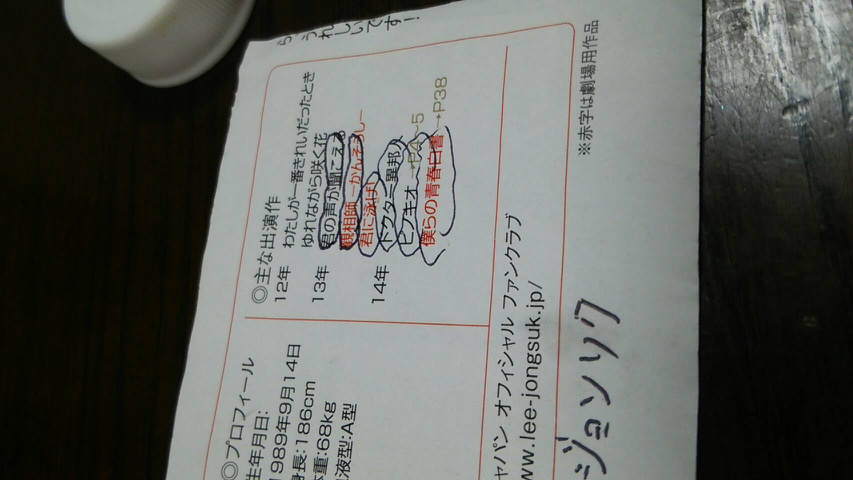 うれしいです!
◎プロフィール
生年月日:
1989年9月14日
身長:186cm
体重:68kg
液型:A型
◎主な出演作
12年 わたしが一番きれいだったとき
ゆれながら咲く花
13年 君の声が聞こえる
観相師－かんそうし－
君に泳げ!
14年 ドクター異邦人
ピノキオ →P4～5
僕らの青春白書 →P38
※赤字は劇場用作品
ャパン オフィシャル ファンクラブ
ww.lee-jongsuk.jp/
ージョンソク